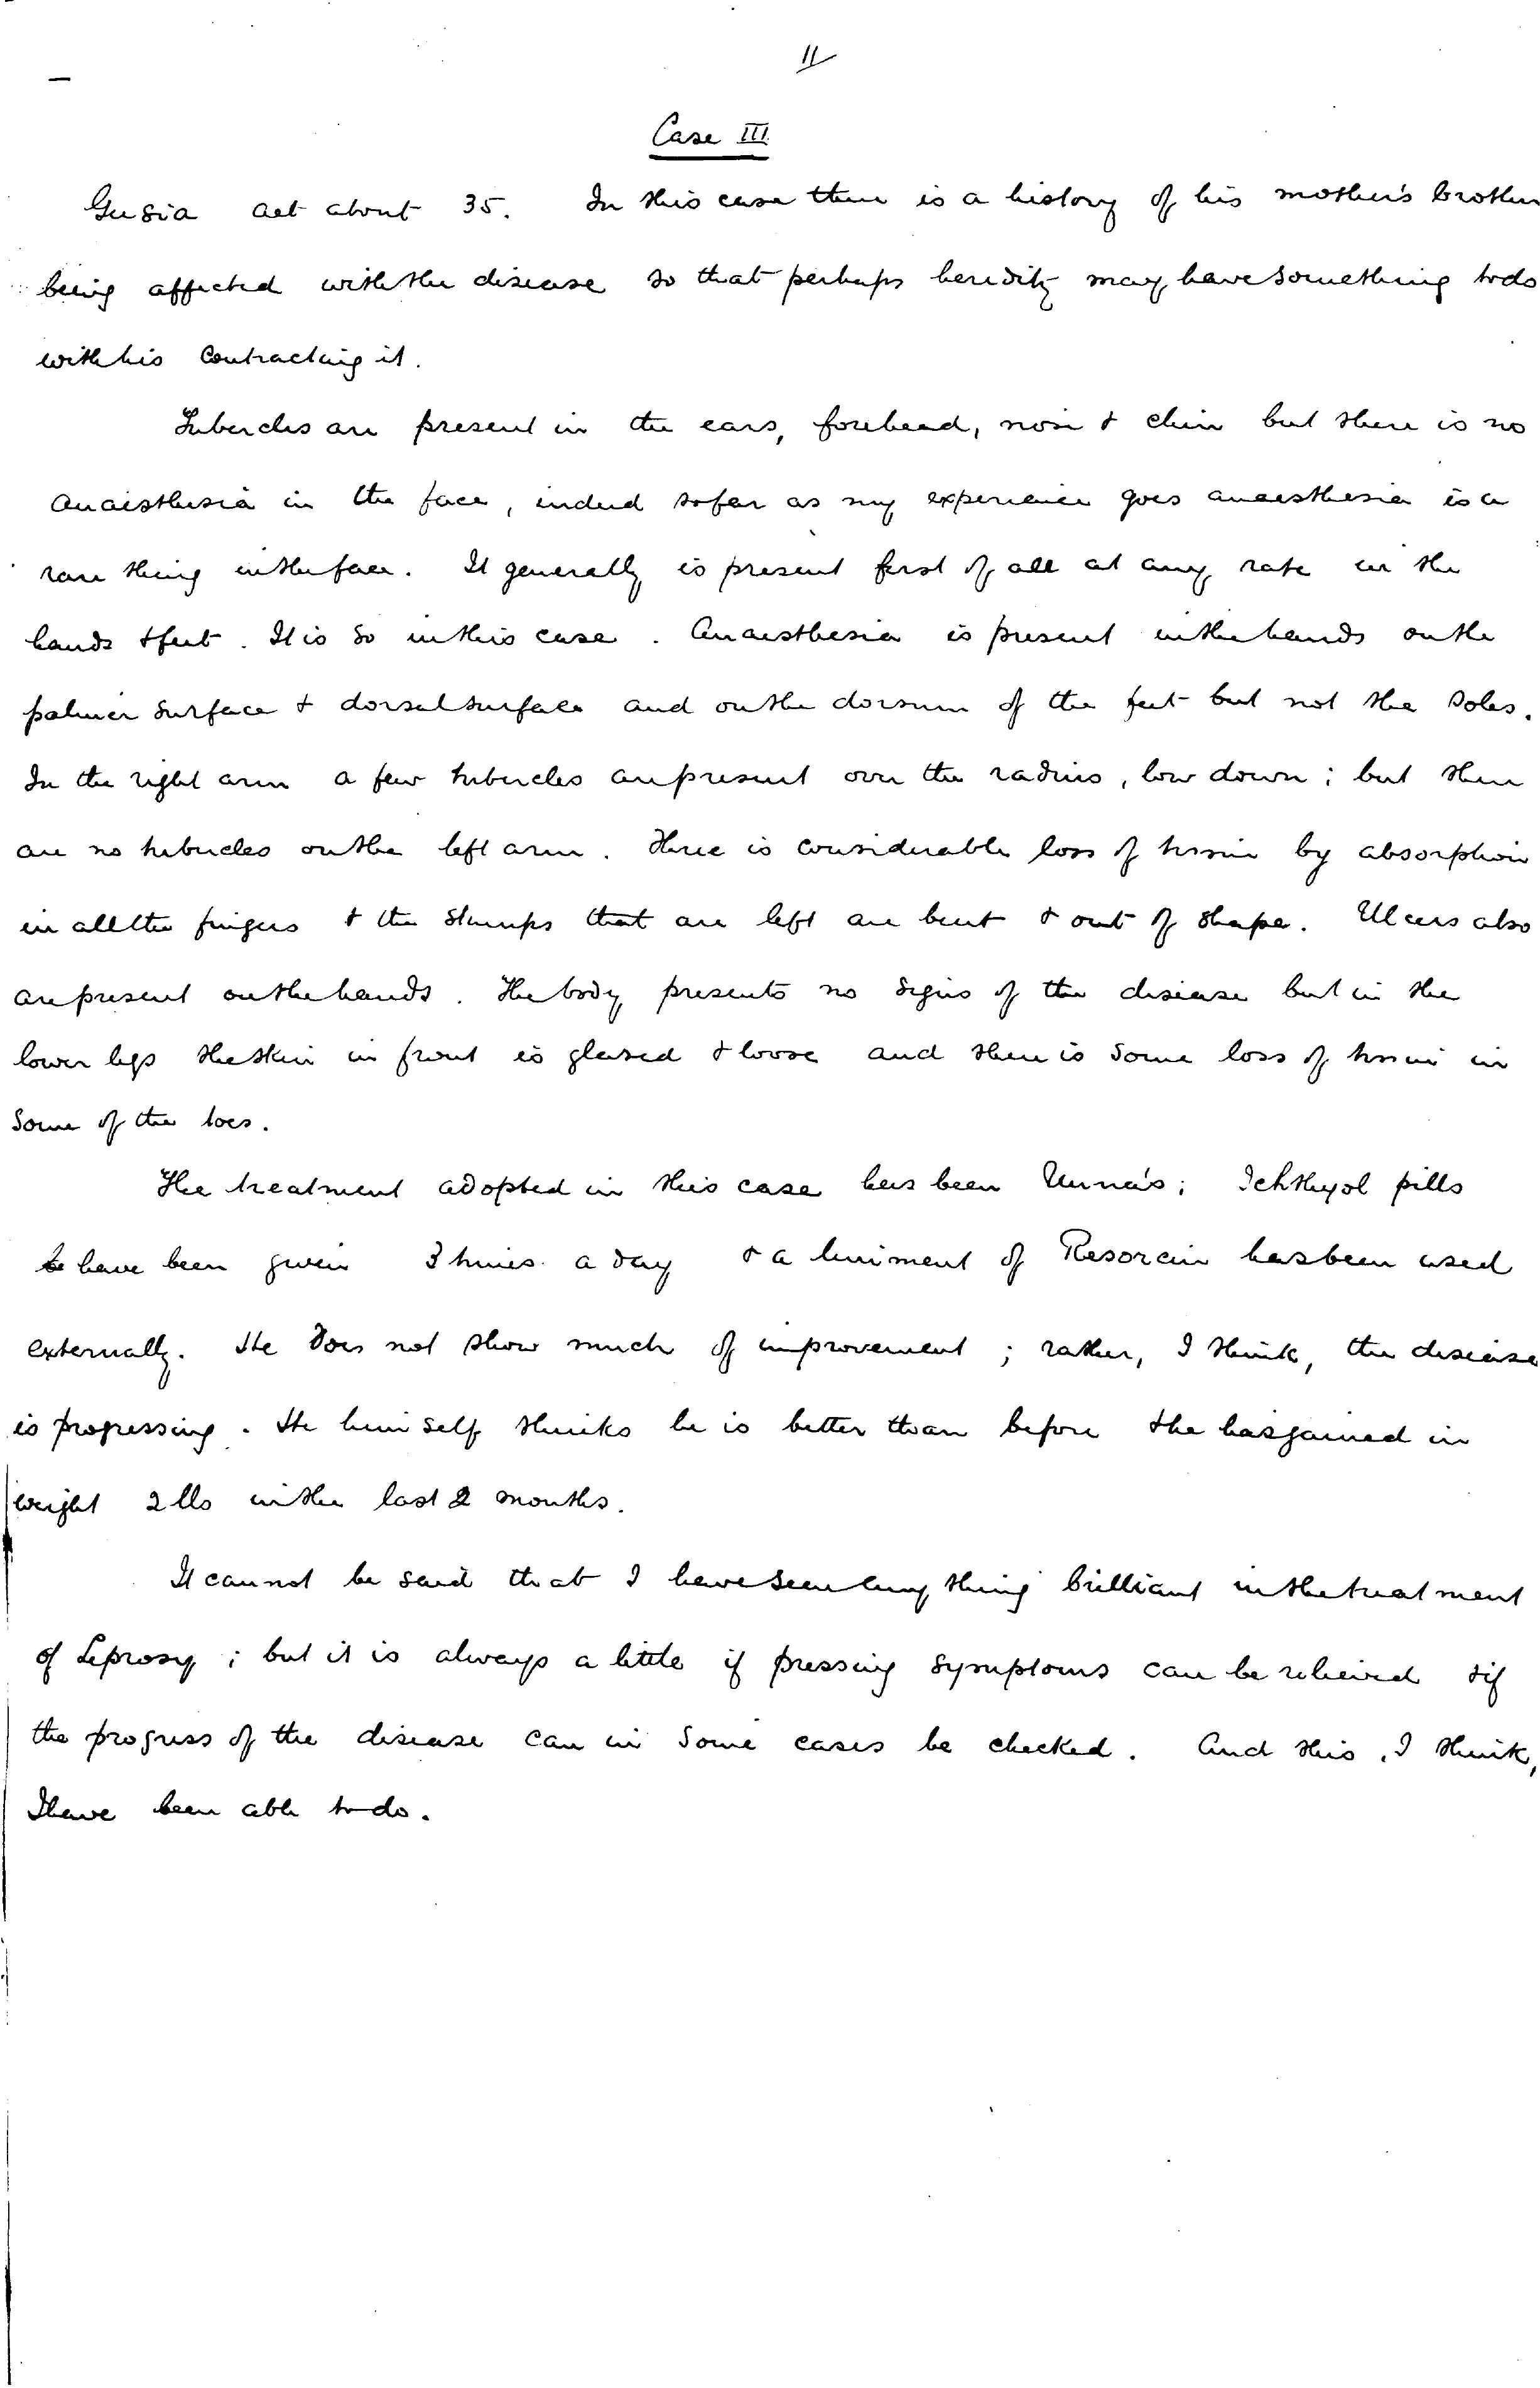 11
Case III
Gusia aet about 35. In this case there is a history of his mother's brother
being affected with the disease so that perhaps heredity may have something to do
with his contracting it.
Tubercles are present in the ears, forehead, nose & chin but there is no
anaesthesia in the face, indeed so far as my experience goes anaesthesia is a
rare thing in the face. It generally is present first of all at any rate in the
hands & feet. It is so in this case. Anaesthesia is present in the hands on the
palmer surface & dorsal surface and on the dorsum of the feet but not the soles.
In the right arm a few tubercles are present over the radius, low down; but there
are no tubercles on the left arm. There is considerable loss of tissue by absorption
in all the fingers & the stumps that are left are bent & out of shape. Ulcers also
are present on the hands. The body presents no signs of the disease but in the
lower legs the skin in front is glazed & loose and there is some loss of tissue in
some of the toes.
The treatment adopted in this case has been Unna's; Ichthyol pills
have been given 3 times a day & a liniment of Resorcin has been used
externally. He does not show much of improvement; rather, I think, the disease
is progressing. He himself thinks he is better than before & he has gained in
weight 2 lbs in the last 2 months.
It cannot be said that I have seen any thing brilliant in the treatment
of Leprosy; but it is always a little if pressing symptoms can be relieved & if
the progress of the disease can in some cases be checked. And this, I think,
I have been able to do.